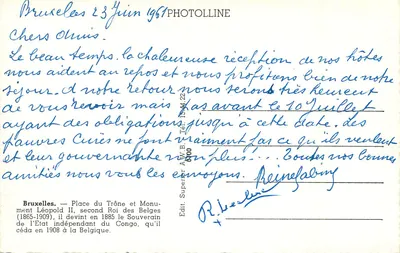 Bruxelles 23 Juin 1961
PHOTOLLINE
Chers Amis.
Le beau temps, la chaleureuse réception de nos hôtes
nous aident au repos et nous profitons bien de notre
séjour. A notre retour nous serons très heureux
de vous revoir mais pas avant le 10 Juillet
ayant des obligations jusqu'à cette date. Les
pauvres Curés ne font vraiment pas ce qu'ils veulent
et leur gouvernante non plus!... Toutes nos bonnes
amitiés nous vous les envoyons.
Bruxelles. — Place du Trône et Monu-
ment Léopold II, second Roi des Belges
(1865-1909), il devint en 1885 le Souverain
de l'Etat indépendant du Congo, qu'il
céda en 1908 à la Belgique.